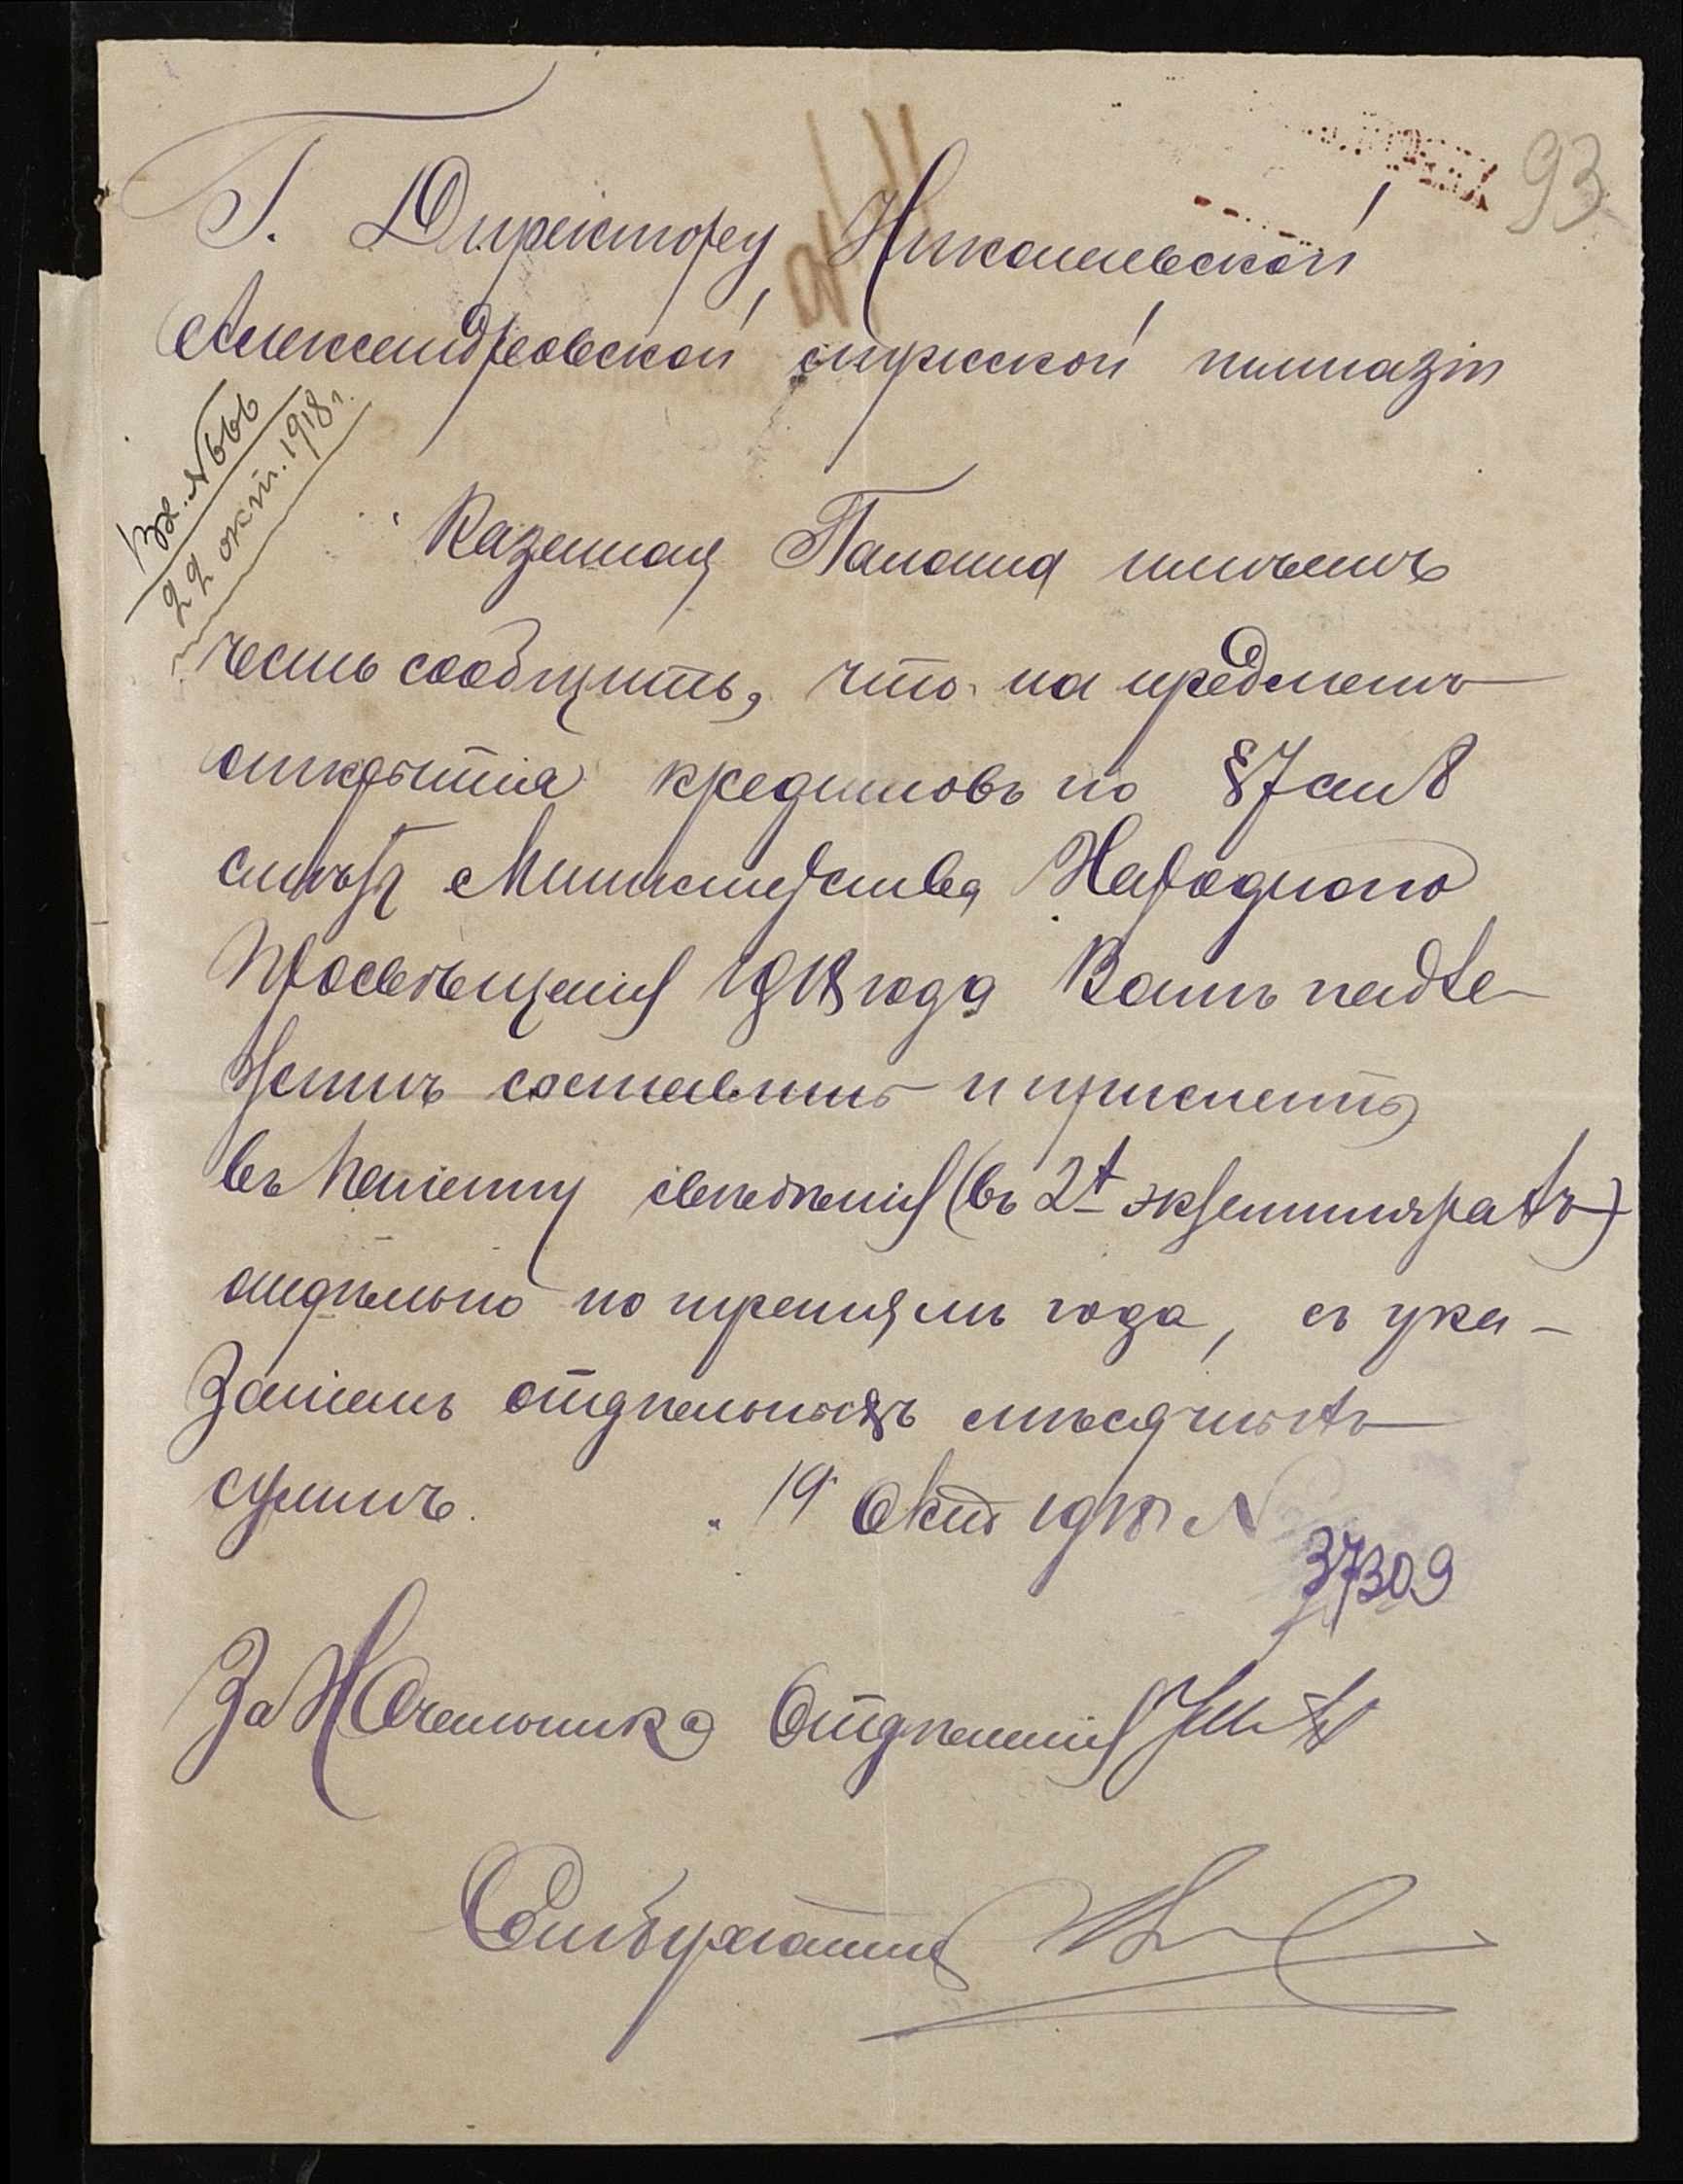 93
Г. Директору Николаевской
Александровской мужской гимназіи
Вх. № 666
22 окт. 1918 г.
Казенная Палата имѣетъ
честь сообщить, что на предметъ
открытія кредитовъ по § 7 ст 8
смѣтѣ Министерства Народного
Просвѣщенія 1918 года Вамъ надле-
житъ составить и прислать
въ Палату свѣдѣнія (въ 2х экземплярахъ)
отдѣльно по третямъ года, съ ука-
заніемъ отдѣльныхъ мѣсячныхъ
суммъ. 19 Окт 1918 №
37309
За Начальника Отдѣленія
Бухгалтеръ